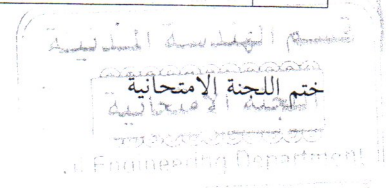 قسم الهندسة المدنية
ختم اللجنة الامتحانية
اللجنة الامتحانية
Engineering Department